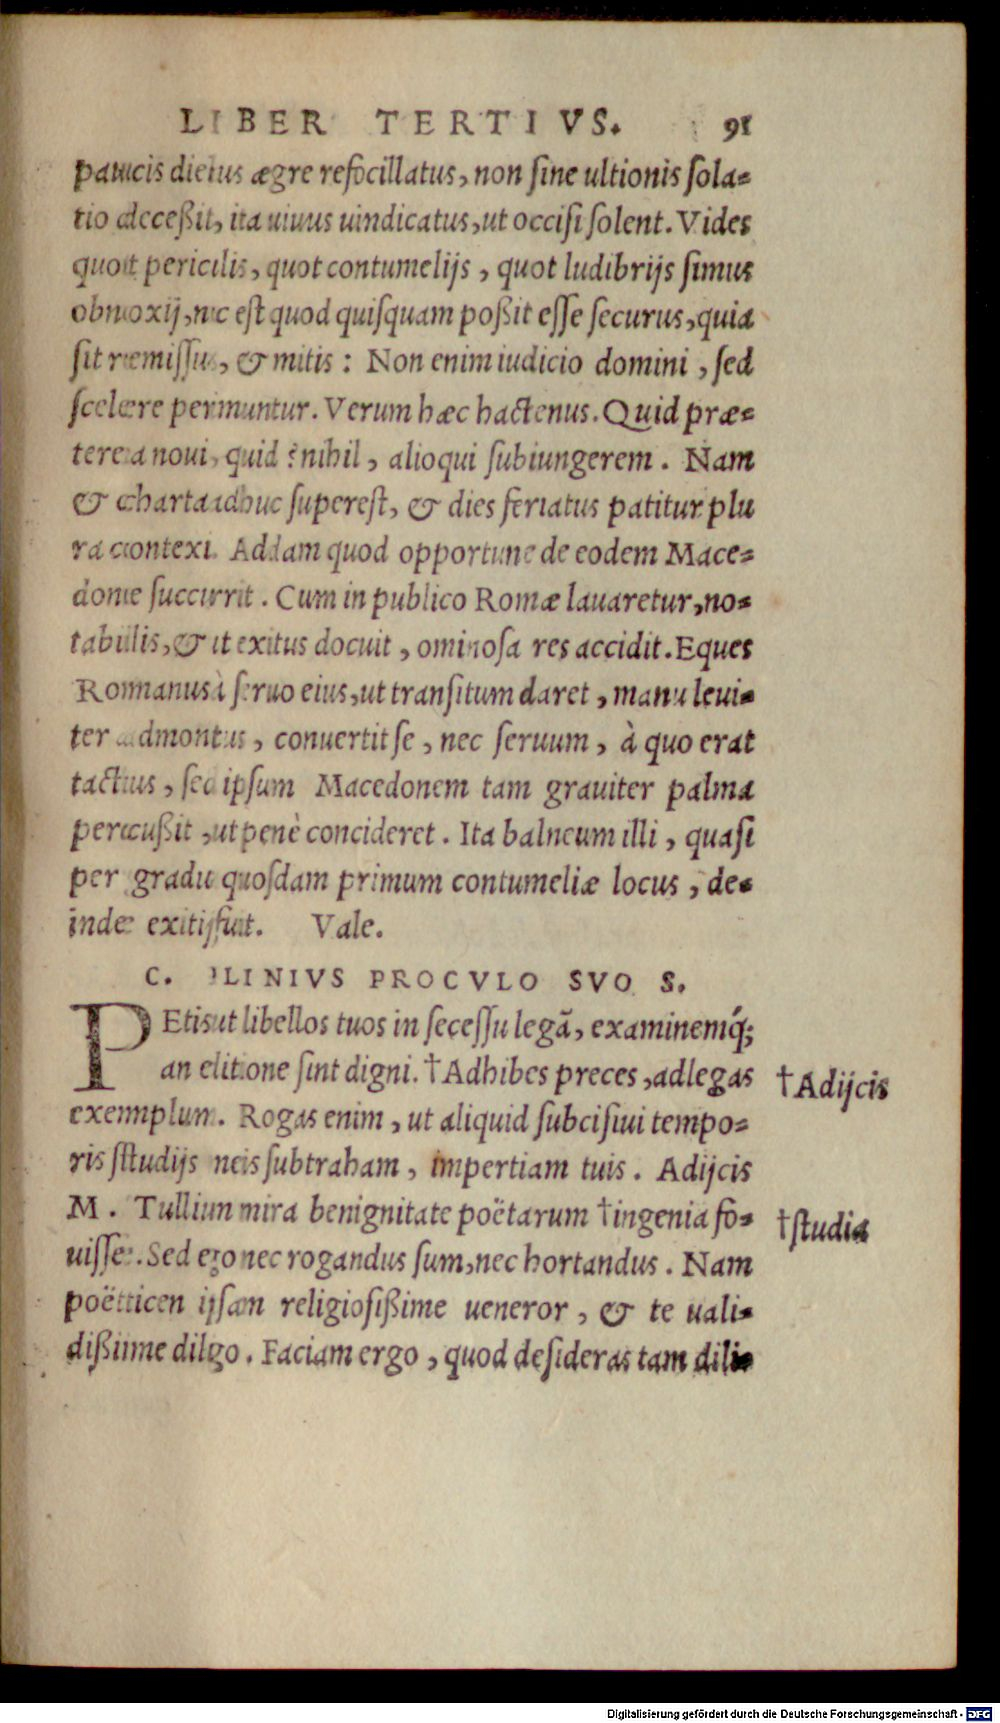 LIBER TERTIVS. 91
paucis diebus ægre refocillatus, non ſine ultionis ſola=
tio deceßit, ita uiuus uindicatus, ut occiſi ſolent. Vides
quot periculis, quot contumelijs, quot ludibrijs ſimus
obnoxij, nec eſt quod quiſquam poßit eſſe ſecurus, quia
ſit remiſſus, & mitis: Non enim iudicio domini, ſed
ſcelere perimuntur. Verum hæc hactenus. Quid præ=
terea noui, quid? nihil, alioqui ſubiungerem. Nam
& charta adhuc ſupereſt, & dies feriatus patitur plu
ra contexi. Addam quod opportune de eodem Mace=
done ſuccurrit. Cum in publico Romæ lauaretur, no=
tabilis, & ut exitus docuit, ominoſa res accidit. Eques
Romanus à ſeruo eius, ut tranſitum daret, manu leui=
ter admonitus, conuertit ſe, nec ſeruum, à quo erat
tactus, ſed ipſum Macedonem tam grauiter palma
percußit, ut penè concideret. Ita balneum illi, quaſi
per gradus quoſdam primum contumeliæ locus, de=
inde exitij fuit. Vale.
C. PLINIVS PROCVLO SVO S.
PEtis ut libellos tuos in ſeceſſu legã, examinemq́;
an editione ſint digni. †Adhibes preces, adlegas
exemplum. Rogas enim, ut aliquid ſubciſiui tempo=
ris ſtudijs meis ſubtraham, impertiam tuis. Adijcis
M. Tullium mira benignitate poëtarum †ingenia fo=
uiſſe. Sed ego nec rogandus ſum, nec hortandus. Nam
poëticen ipſam religioſißime ueneror, & te uali=
dißime diligo. Faciam ergo, quod deſideras tam dili=
†Adijcis
†ſtudia
Digitalisierung gefördert durch die Deutsche Forschungsgemeinschaft - DFG